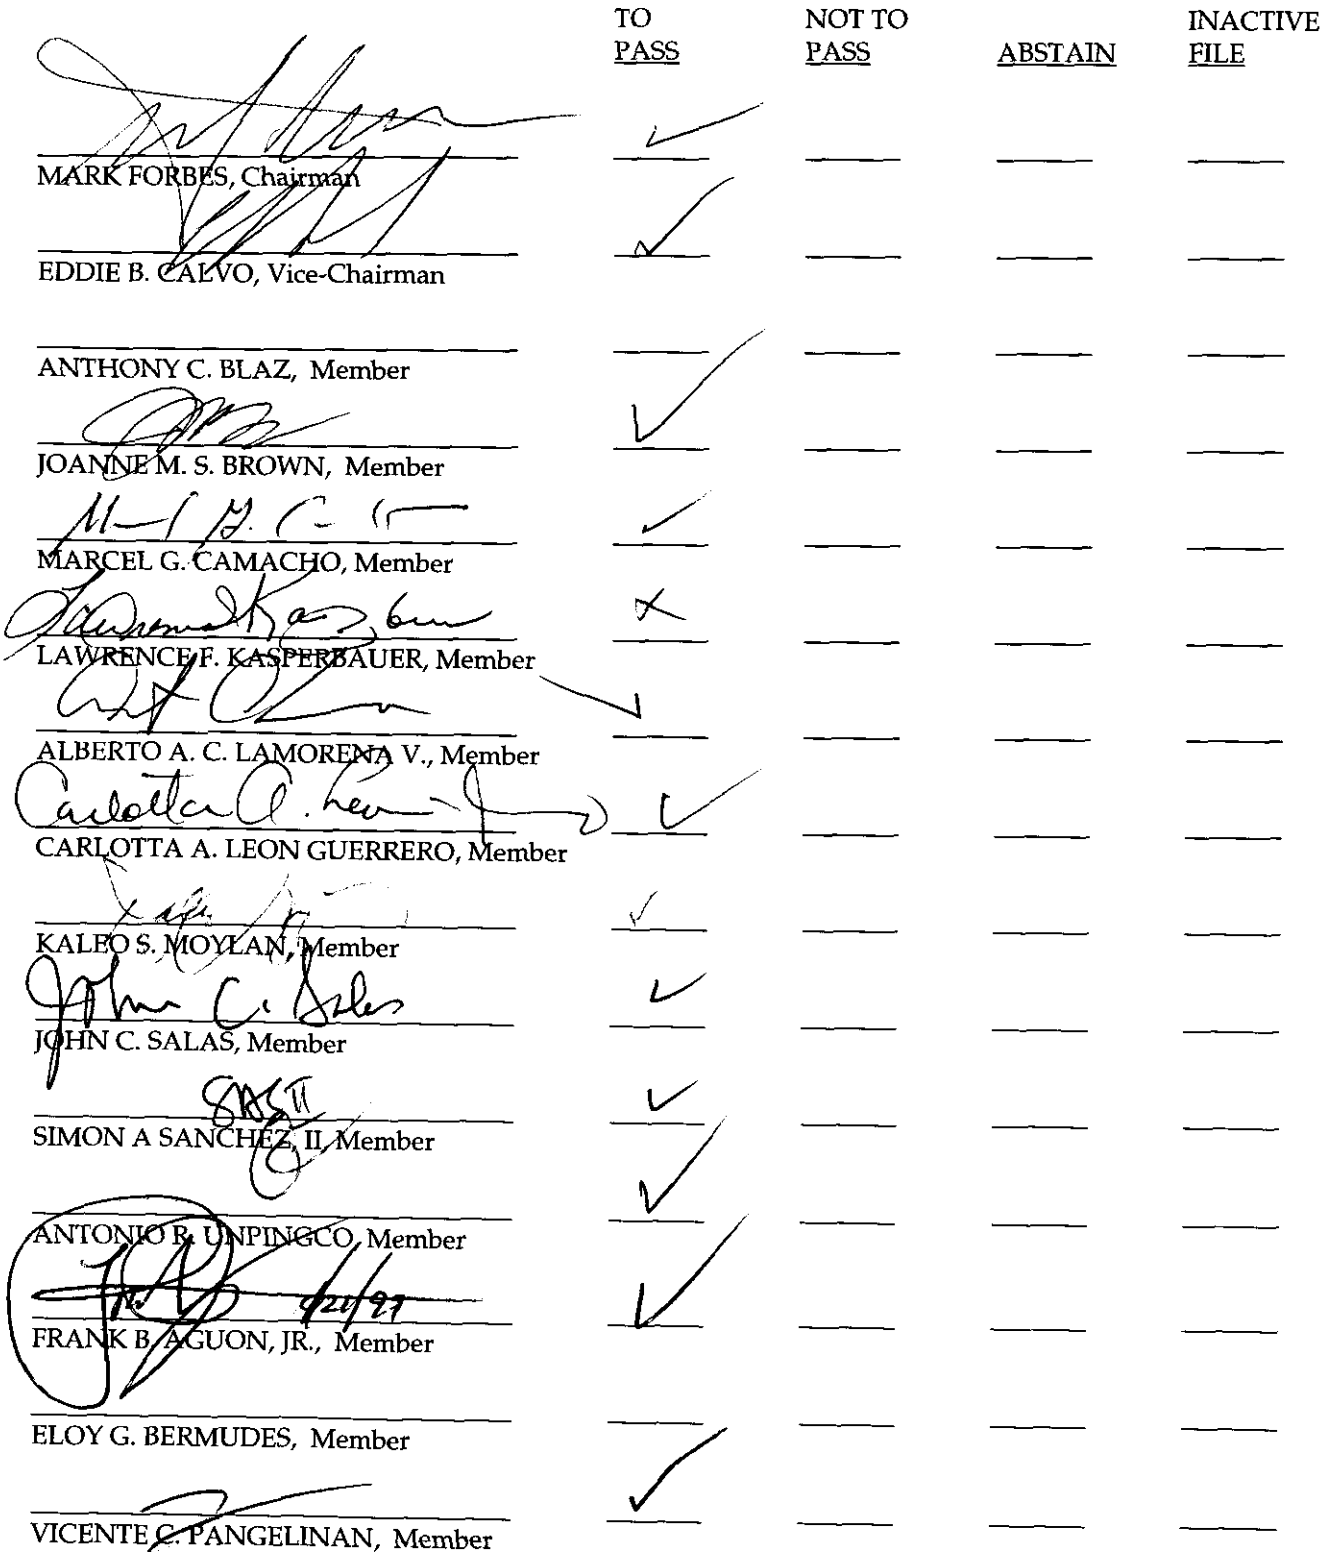 TO PASS NOT TO PASS ABSTAIN INACTIVE FILE
MARK FORBES, Chairman
EDDIE B. CALVO, Vice-Chairman
ANTHONY C. BLAZ, Member
JOANNE M. S. BROWN, Member
MARCEL G. CAMACHO, Member
LAWRENCE F. KASPERBAUER, Member
ALBERTO A. C. LAMORENA V., Member
Carlotta A. Leon
CARLOTTA A. LEON GUERRERO, Member
KALEO S. MOYLAN, Member
John C. Salas
JOHN C. SALAS, Member
SAS II
SIMON A SANCHEZ, II, Member
ANTONIO R. UNPINGCO, Member
FRANK B. AGUON, JR., Member
ELOY G. BERMUDES, Member
VICENTE C. PANGELINAN, Member